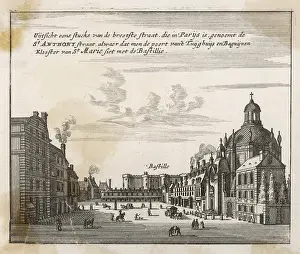 Uijtsicht eens stucks van de breetste straat, die in Parijs is, genoemt de
St. ANTHONI straat, alwaar dat men de poort van't Tuijghuijs en Bagnijnen
Klooster van St. Marie siet met de Bastillie.
Bastille